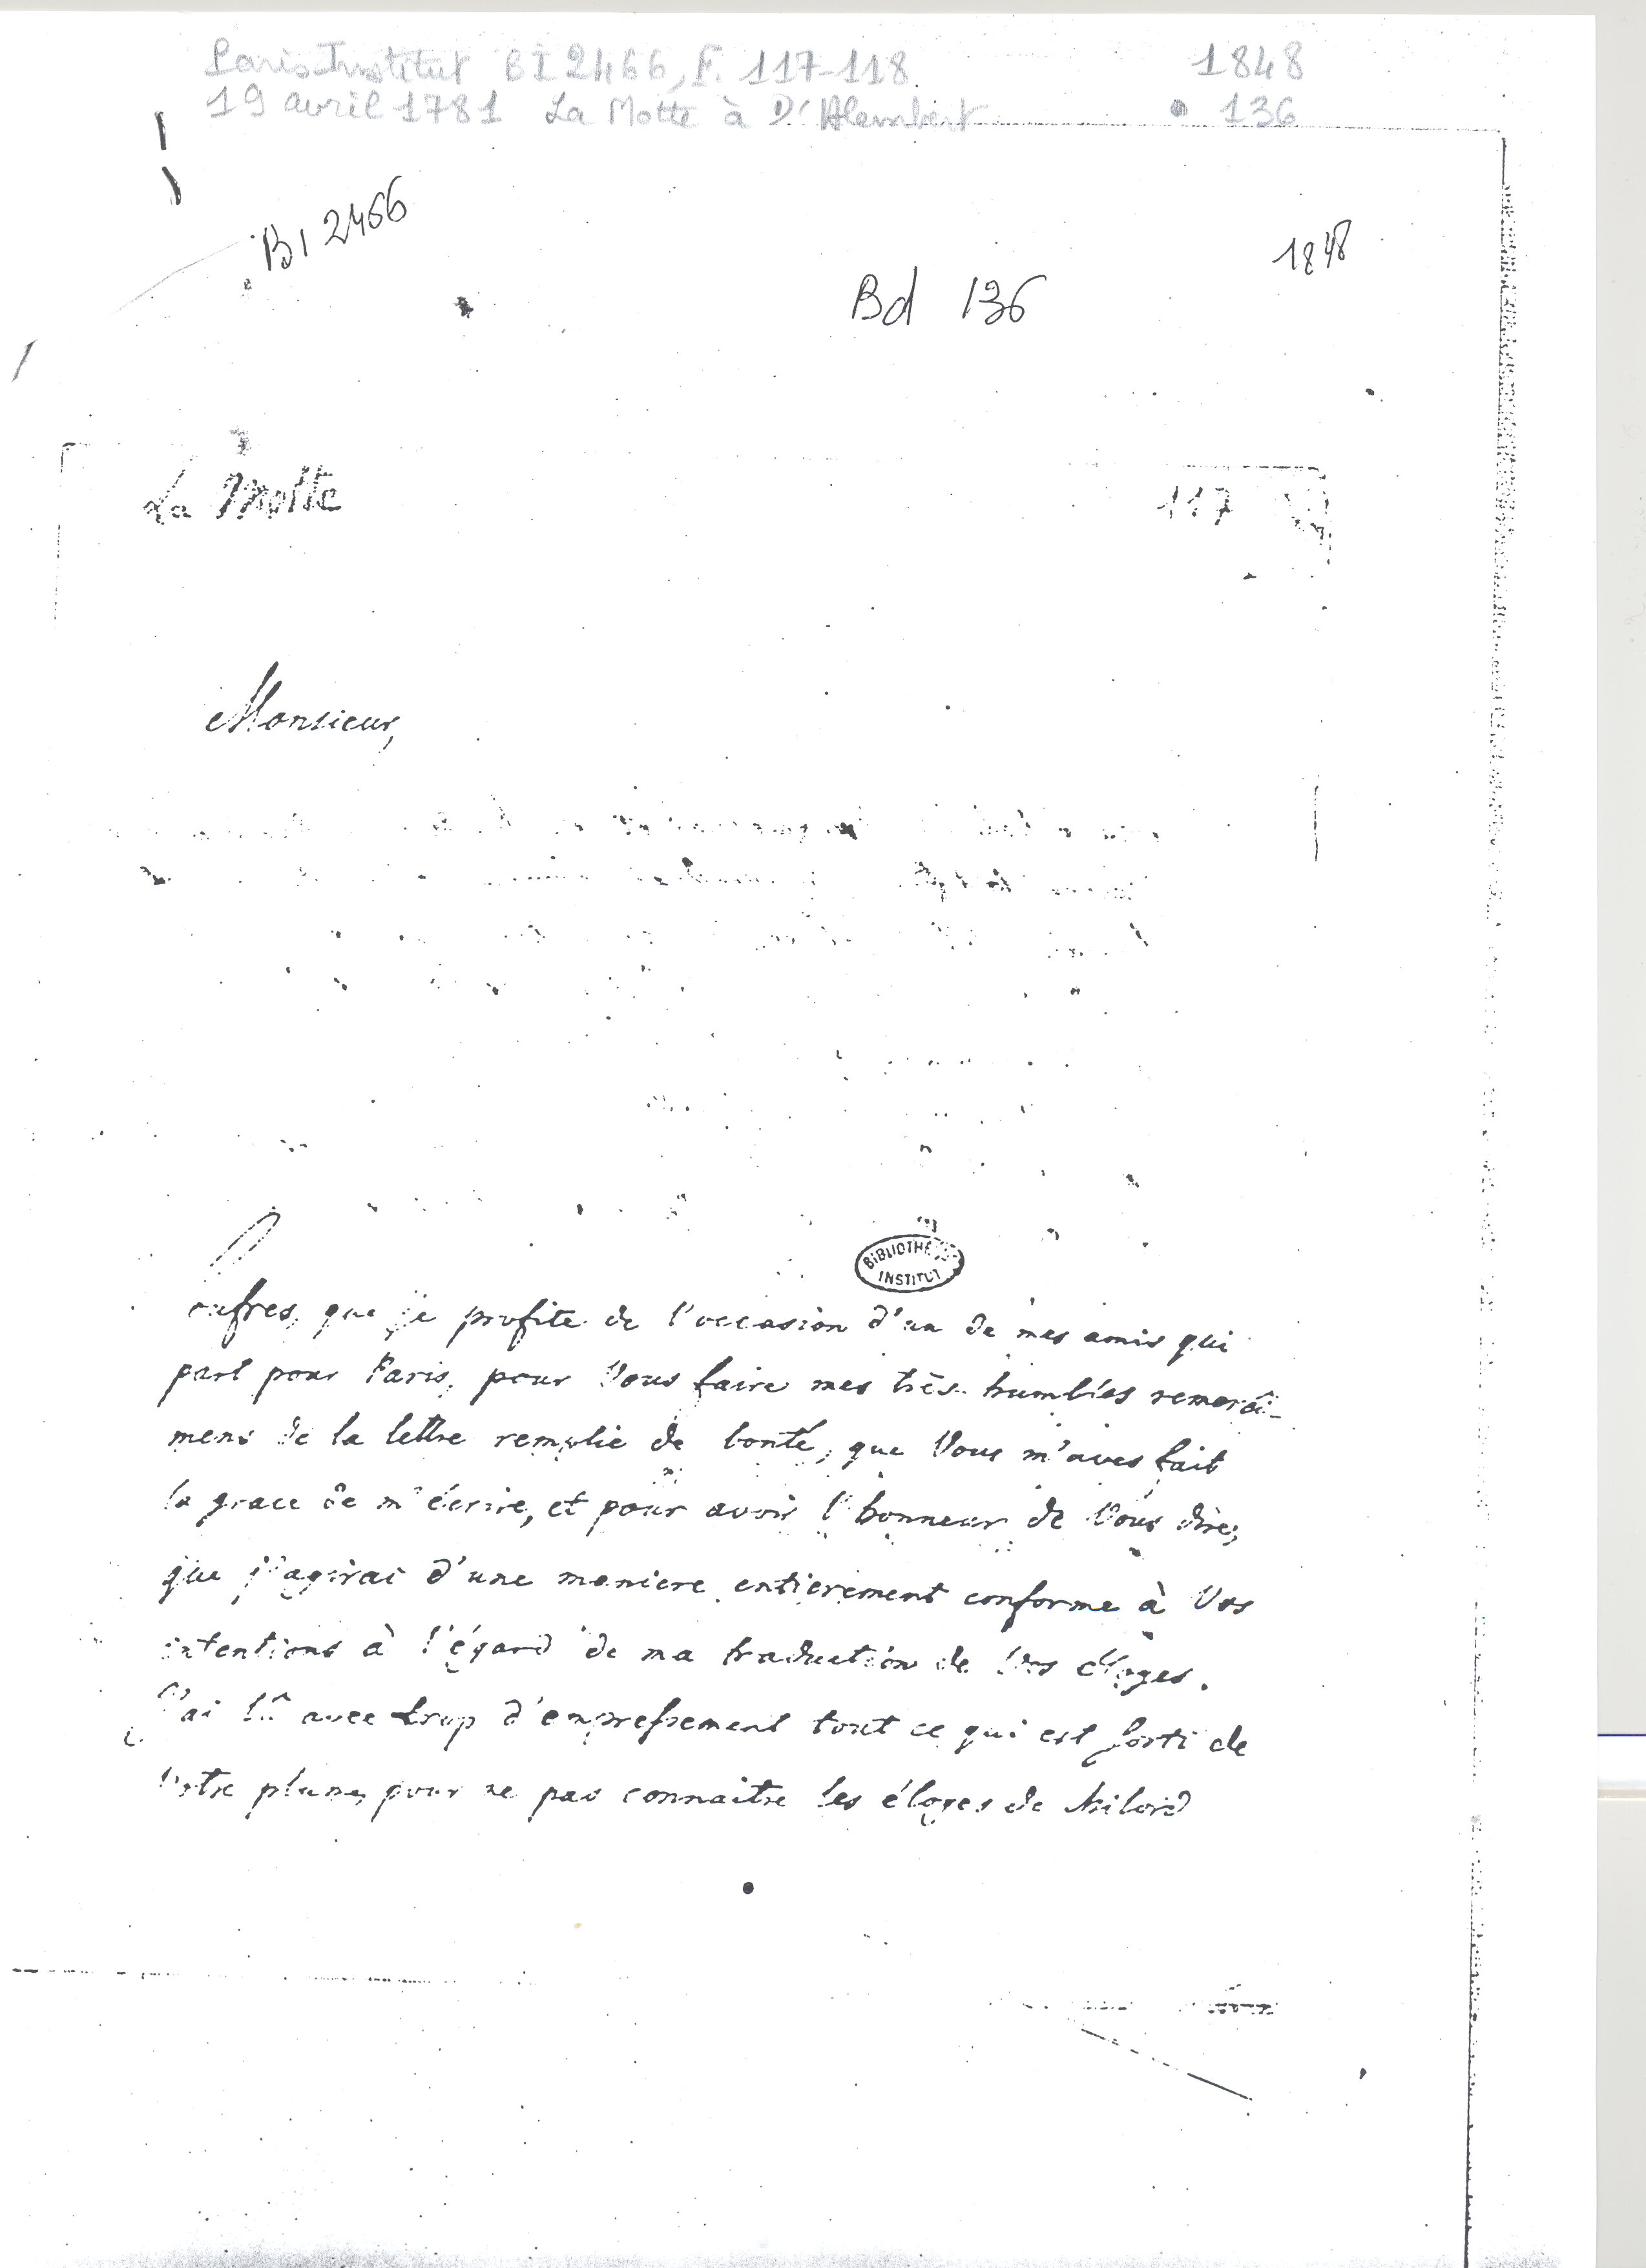 Paris Institut BI 2466, F. 117-118 1848
19 avril 1781 La Motte à D'Alembert 136
BI 2466
1848
Bd 136
La Motte
117
Monsieur,
BIBLIOTHÈ
INSTITUT
oufres, que je profite de l'occasion d'un de mes amis qui
part pour Paris, pour Vous faire mes très humbles remercî-
mens de la lettre remplie de bonté, que Vous m'aves fait
la grace de m'écrire, et pour avoir l'honneur de Vous dire,
que j'agirai d'une maniere entierement conforme à Vos
intentions à l'égard de ma traduction de Vos éloges.
J'ai lû avec trop d'empressement tout ce qui est sorti de
Votre plume, pour ne pas connaitre les éloges de Milord